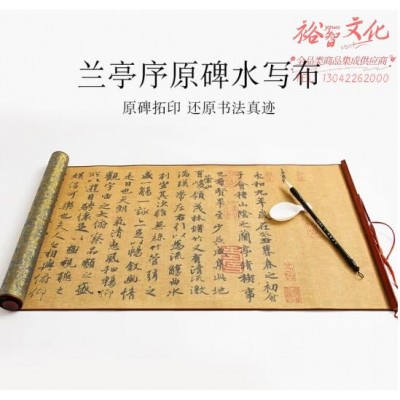 裕智文化
全品类商品集成供应商
13042262000
兰亭序原碑水写布
原碑拓印 还原书法真迹
永和九年歲在癸丑暮春之初會
于會稽山陰之蘭亭脩禊事
也羣賢畢至少長咸集此地
有崇山峻領茂林脩竹又有清流激
湍暎帶左右引以為流觴曲水
列坐其次雖無絲竹管弦之
盛一觴一詠亦足以暢敘幽情
是日也天朗氣清惠風和暢仰
觀宇宙之大俯察品類之盛
所以遊目騁懷足以極視聽之
娛信可樂也夫人之相與俯仰